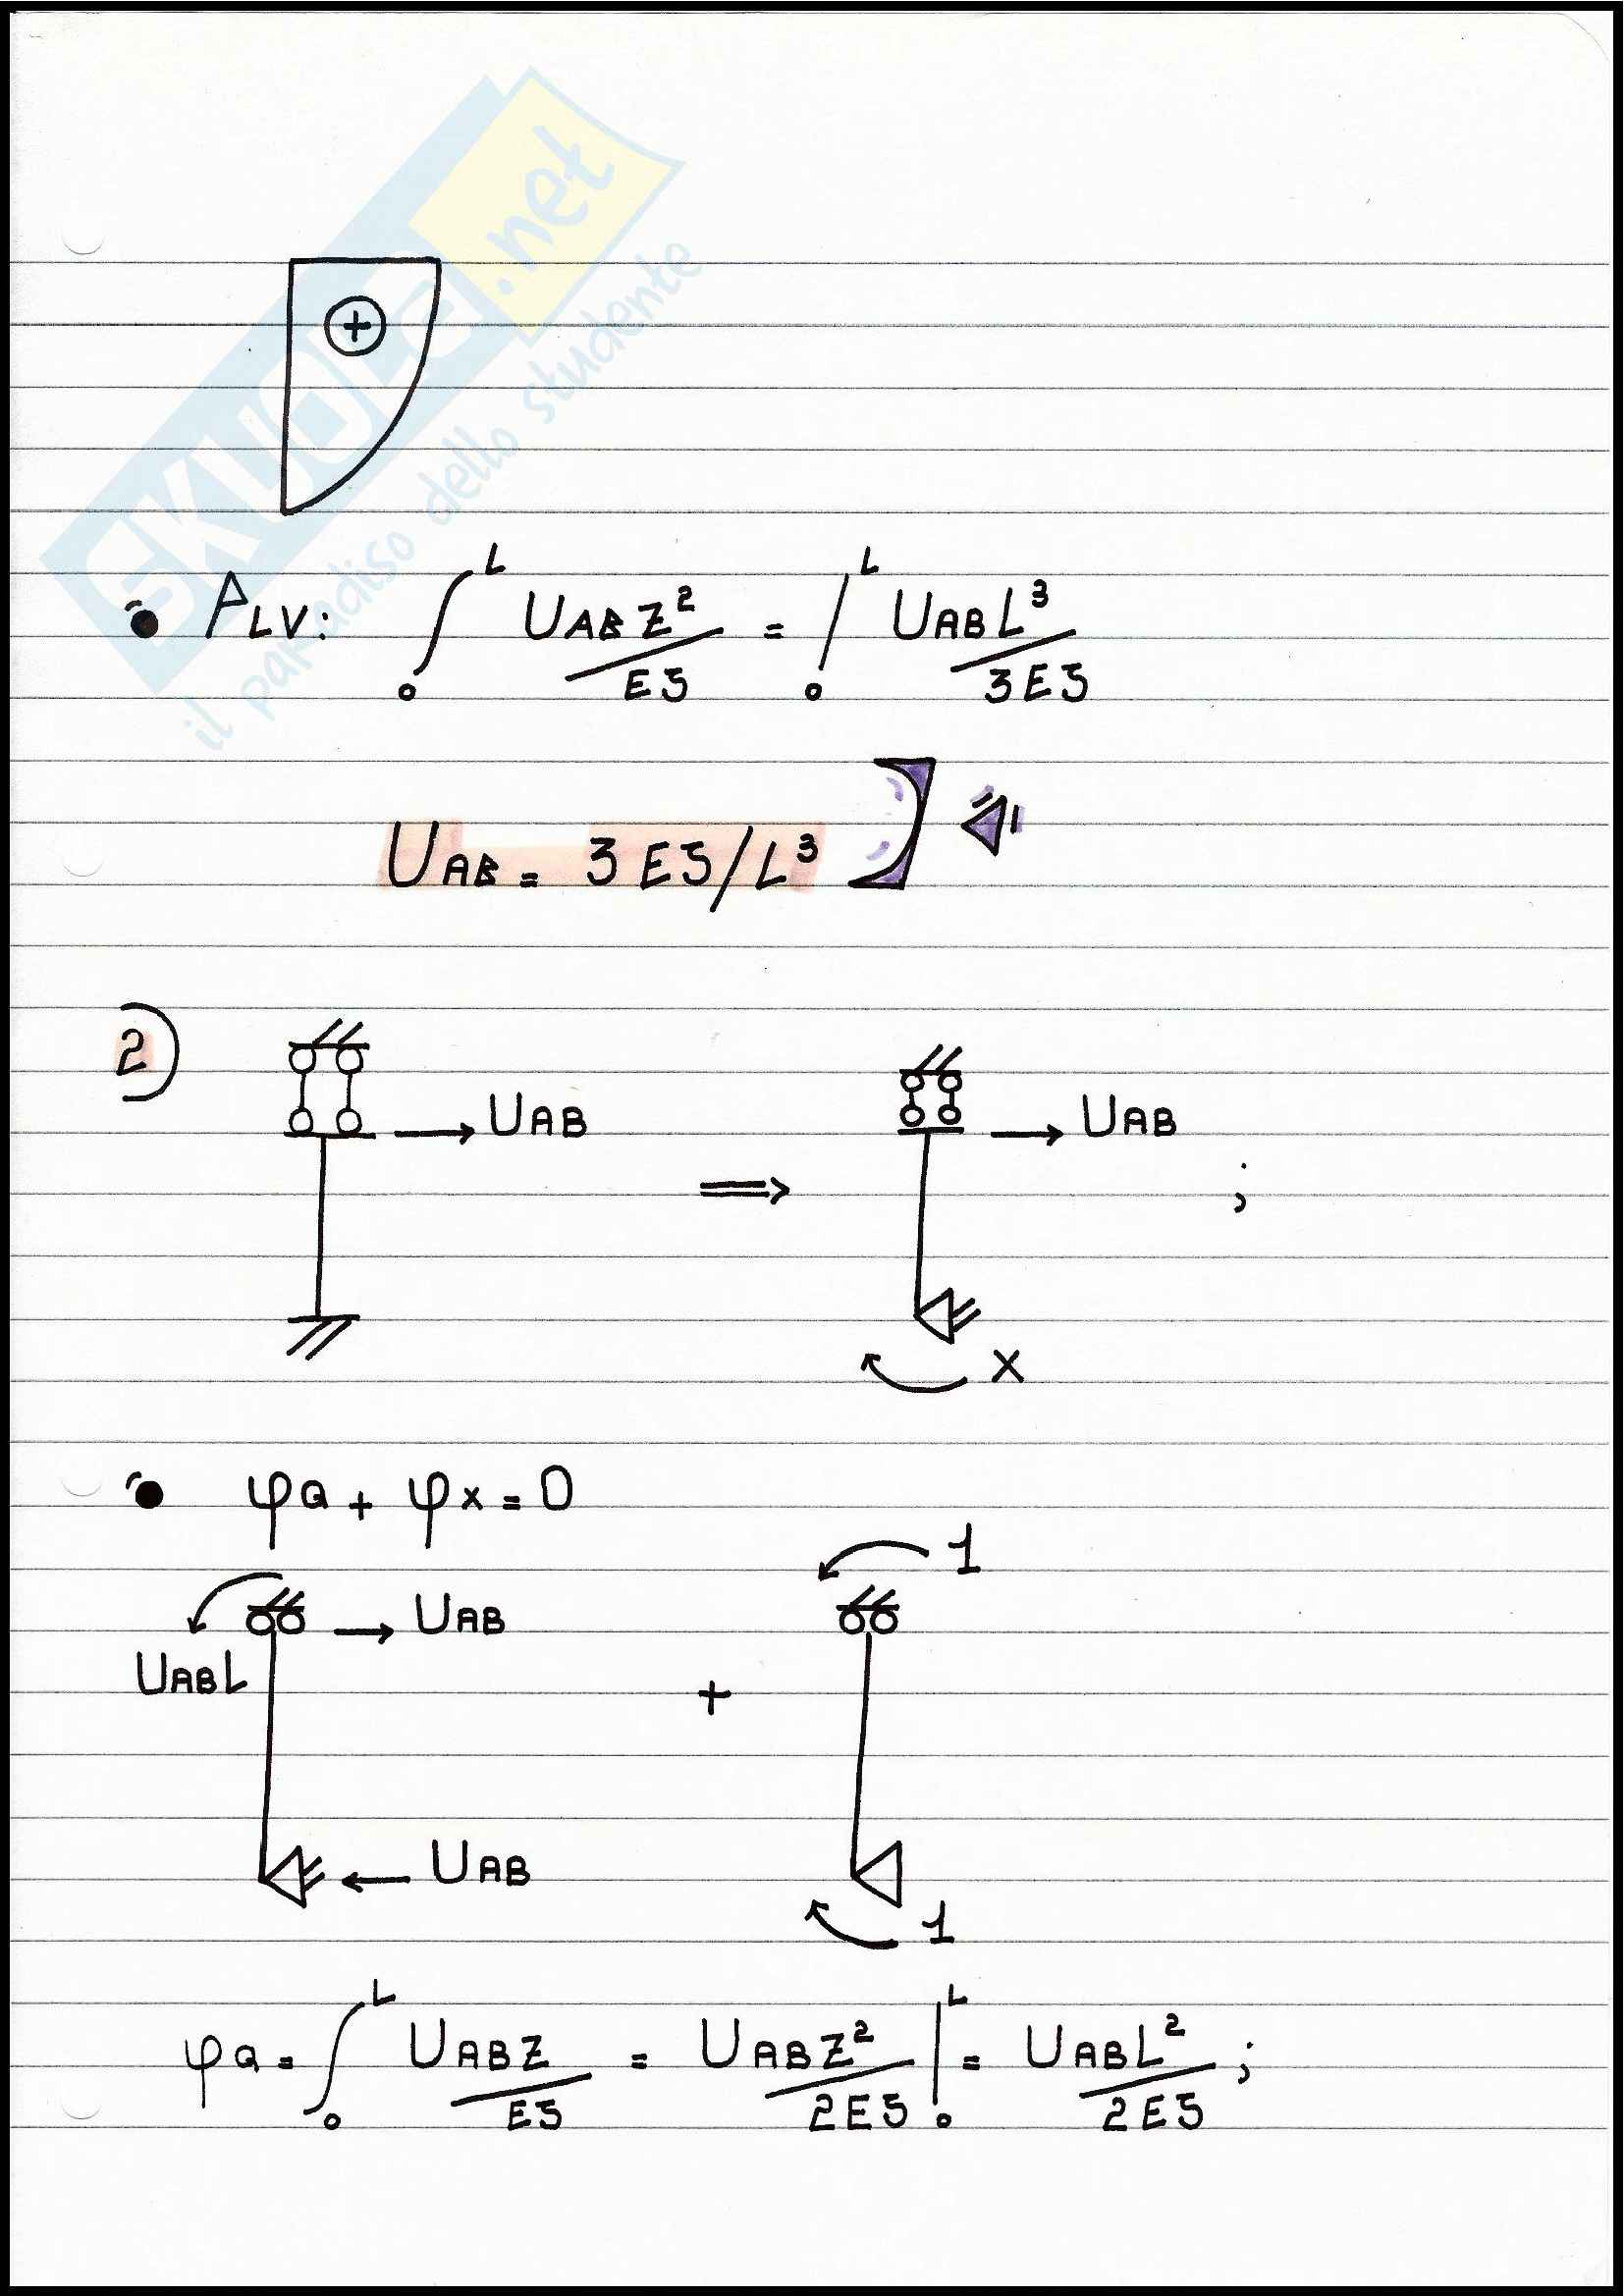 SKUOLA.net
il paradiso dello studente
+
• PLV: ∫₀ᴸ UAB Z²/EJ = |₀ᴸ UAB L³/3EJ
UAB = 3EJ/L³
2)
UAB ⟹ UAB ;
X
• φQ + φX = 0
1
UAB
UABL
+
UAB
1
φQ = ∫₀ᴸ UABZ/EJ = UABZ²/2EJ |₀ᴸ = UABL²/2EJ ;